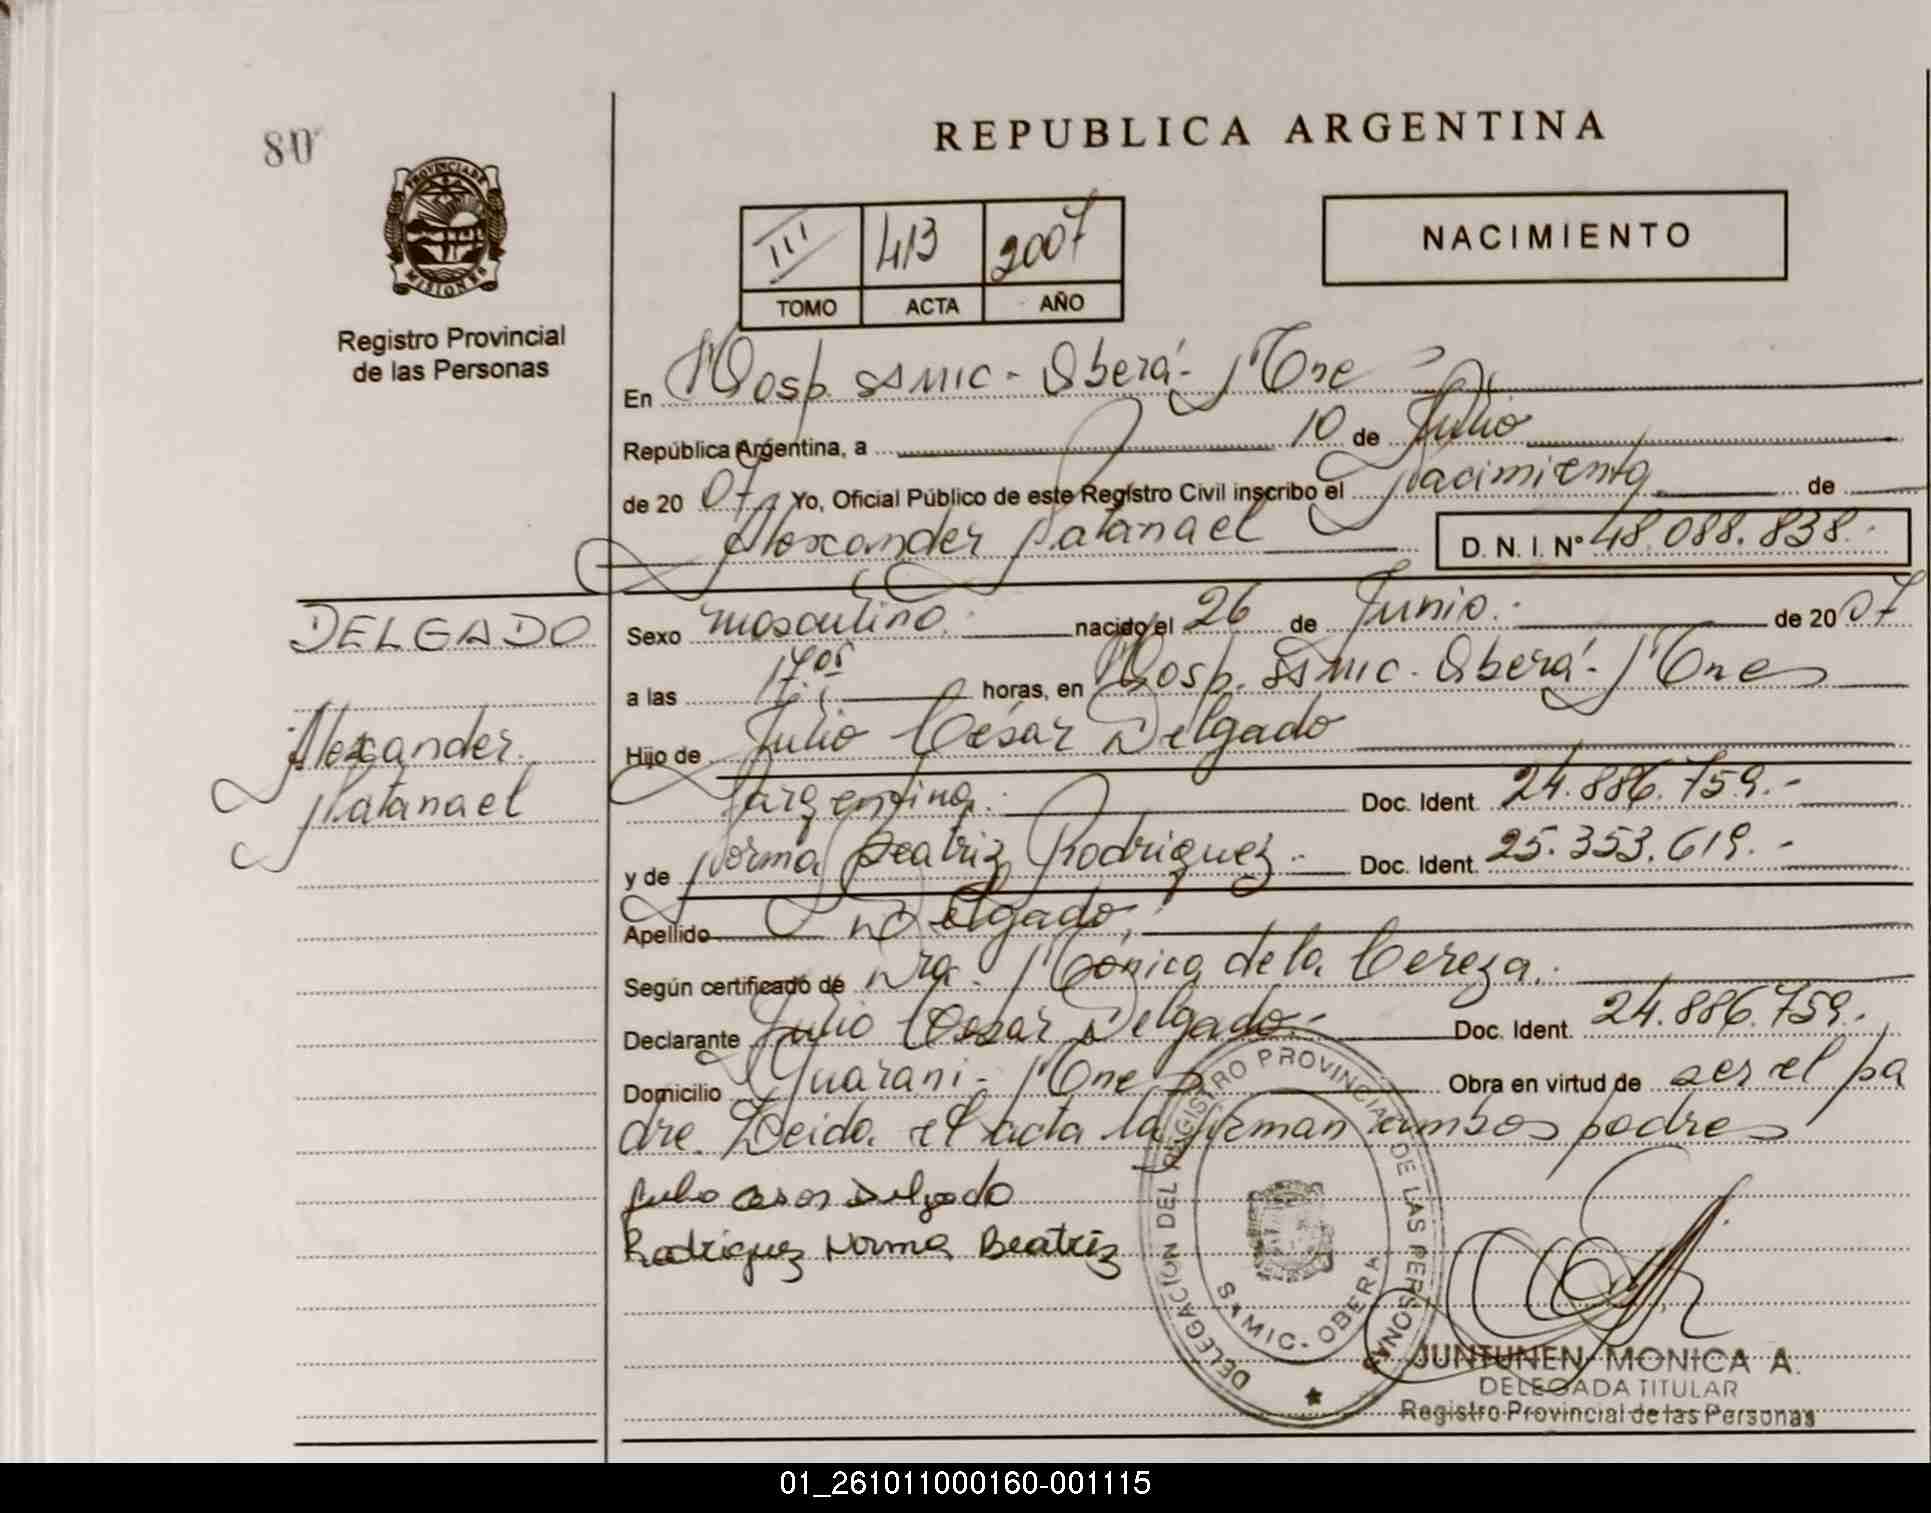 80
REPUBLICA ARGENTINA
PROVINCIA DE
MISIONES
Registro Provincial
de las Personas
III 413 2007
TOMO ACTA AÑO
NACIMIENTO
En Hosp. SAMIC - Oberá - Mnes
República Argentina, a 10 de Julio
de 20 07 Yo, Oficial Público de este Registro Civil inscribo el Nacimiento de
Alexander Natanael D. N. I. Nº 48.088.838.-
DELGADO
Alexander
Natanael
Sexo masculino. nacido el 26 de Junio. de 20 07
a las 17:05 horas, en Hosp. SAMIC - Oberá - Mnes
Hijo de Julio César Delgado
argentina. Doc. Ident. 24.886.759.-
y de Norma Beatriz Rodriguez.- Doc. Ident. 25.353.619.-
Apellido Delgado
Según certificado de Dra. Mónica de la Cereza.
Declarante Julio Cesar Delgado.- Doc. Ident. 24.886.759.-
Domicilio Guarani - Mnes Obra en virtud de ser el pa
dre. Leida el acta la firman ambos padres
Julio Cesar Delgado
Rodriguez Norma Beatriz
DELEGACION DEL REGISTRO PROVINCIAL DE LAS PERSONAS
SAMIC - OBERA
JUNTUNEN MONICA A.
DELEGADA TITULAR
Registro Provincial de las Personas
01_261011000160-001115